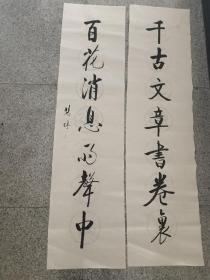 千古文章書卷裏
百花消息雨聲中